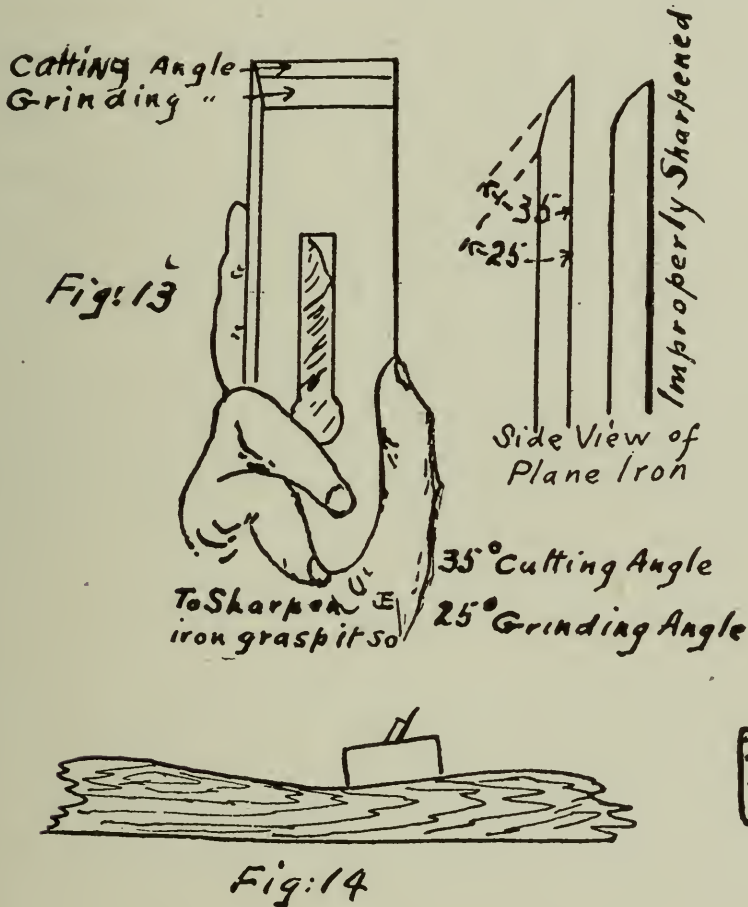 Cutting Angle
Grinding "
Fig: 13
35
25
Improperly Sharpened
Side View of
Plane Iron
35° Cutting Angle
25° Grinding Angle
To Sharpen
iron grasp it so
Fig: 14